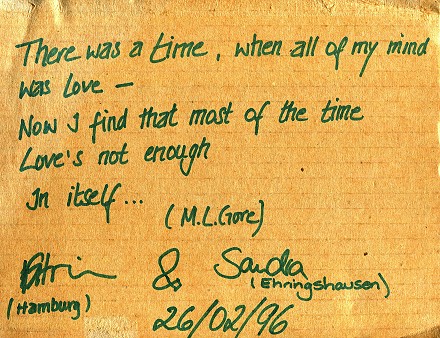 There was a time, when all of my mind
was love —
Now I find that most of the time
Love's not enough
In itself...
(M.L.Gore)
Katrin & Sandra
(Hamburg) (Ehringshausen)
26/02/96